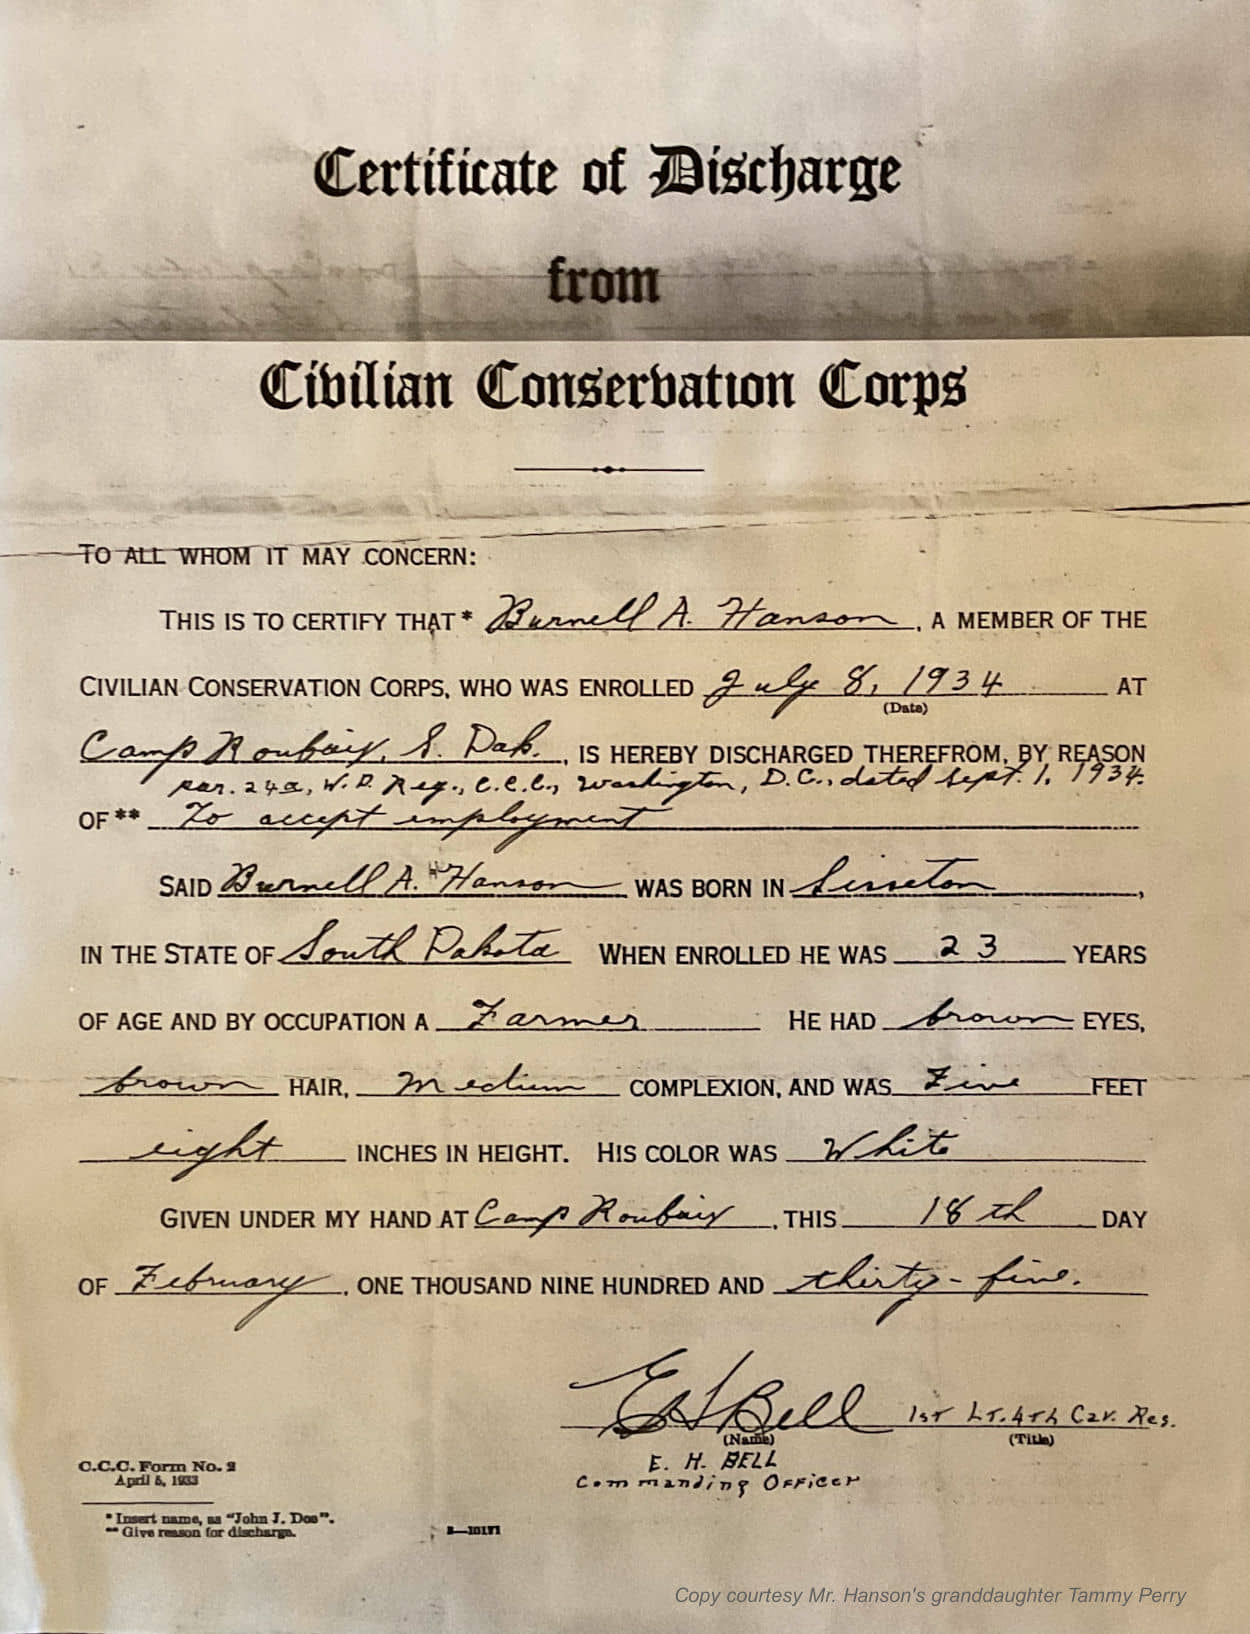 Certificate of Discharge
from
Civilian Conservation Corps
TO ALL WHOM IT MAY CONCERN:
THIS IS TO CERTIFY THAT* Burnell A. Hanson, A MEMBER OF THE
CIVILIAN CONSERVATION CORPS, WHO WAS ENROLLED July 8, 1934 AT
(Date)
Camp Roubaix, S. Dak., IS HEREBY DISCHARGED THEREFROM, BY REASON
par. 24a, W.D. Reg., C.C.C., Washington, D.C., dated Sept. 1, 1934.
OF** To accept employment
SAID Burnell A. Hanson WAS BORN IN Sisseton,
IN THE STATE OF South Dakota WHEN ENROLLED HE WAS 23 YEARS
OF AGE AND BY OCCUPATION A Farmer HE HAD brown EYES,
brown HAIR, Medium COMPLEXION, AND WAS Five FEET
eight INCHES IN HEIGHT. HIS COLOR WAS White
GIVEN UNDER MY HAND AT Camp Roubaix, THIS 18th DAY
OF February, ONE THOUSAND NINE HUNDRED AND thirty-five.
E H Bell 1st Lt. 4th Cav. Res.
(Name) (Title)
E. H. BELL
Commanding Officer
C.C.C. Form No. 2
April 5, 1933
* Insert name, as "John J. Doe".
** Give reason for discharge.
2—10171
Copy courtesy Mr. Hanson's granddaughter Tammy Perry